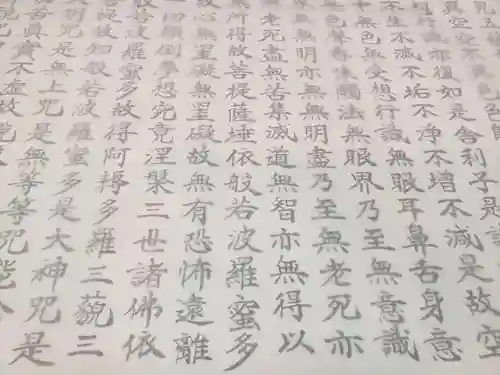 異空空不異色
行識亦復如是舍利子是諸
不生不滅不垢不淨不增不減是故空
中無色無受想行識無眼耳鼻舌身意
無色聲香味觸法無眼界乃至無意識
無無明亦無無明盡乃至無老死亦
老死盡無苦集滅道無智亦無得以
無所得故菩提薩埵依般若波羅蜜多
故心無罣礙無罣礙故無有恐怖遠離
一切顛倒夢想究竟涅槃三世諸佛依
般若波羅蜜多故得阿耨多羅三藐三
提故知般若波羅蜜多是大神咒是
大明咒是無上咒是無等等咒能
真實不虛故